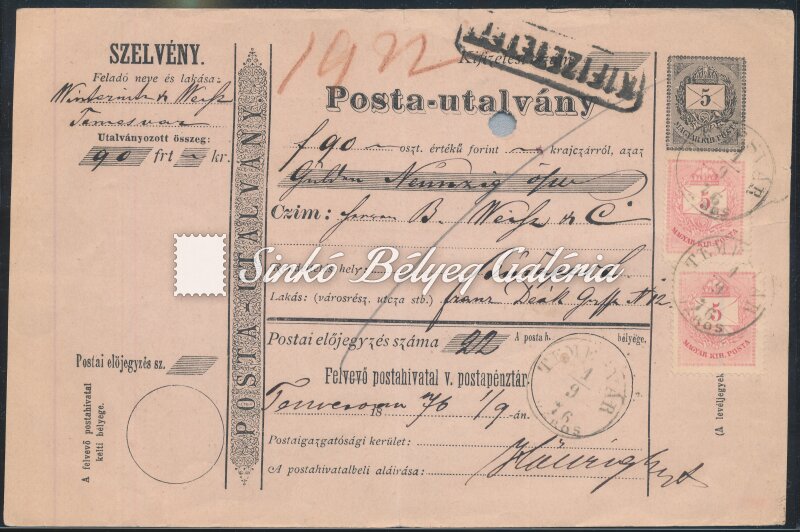 SZELVÉNY.
Feladó neve és lakása:
Winternitz & Weisz
Temesvar
Utalványozott összeg:
90 frt kr.
Postai előjegyzés sz.
A felvevő postahivatal
kelti bélyege.
POSTA-UTALVÁNY
1922
Kifizetési
KIFIZETTETETT
Posta-utalvány
f 90 oszt. értékű forint krajczárról, azaz
Gulden Neunzig öster
Czim: Herrn B. Weisz & C
Sinkó Bélyeg Galéria
hely
Lakás: (városrész, utcza stb.) Franz Deák Gasse N 12
Postai előjegyzés száma 22 A posta h. bélyege.
Felvevő postahivatal v. postapénztár:
Temesvar 1876 1/9-án.
Postaigazgatósági kerület:
A postahivatalbeli aláirása:
TEMESVÁR
1
9
76
VÁROS
5
MAGYAR KIR. POSTA
5
MAGYAR KIR. POSTA
5
MAGYAR KIR. POSTA
TEMESVÁR
1
9
76
VÁROS
(A levéljegyek